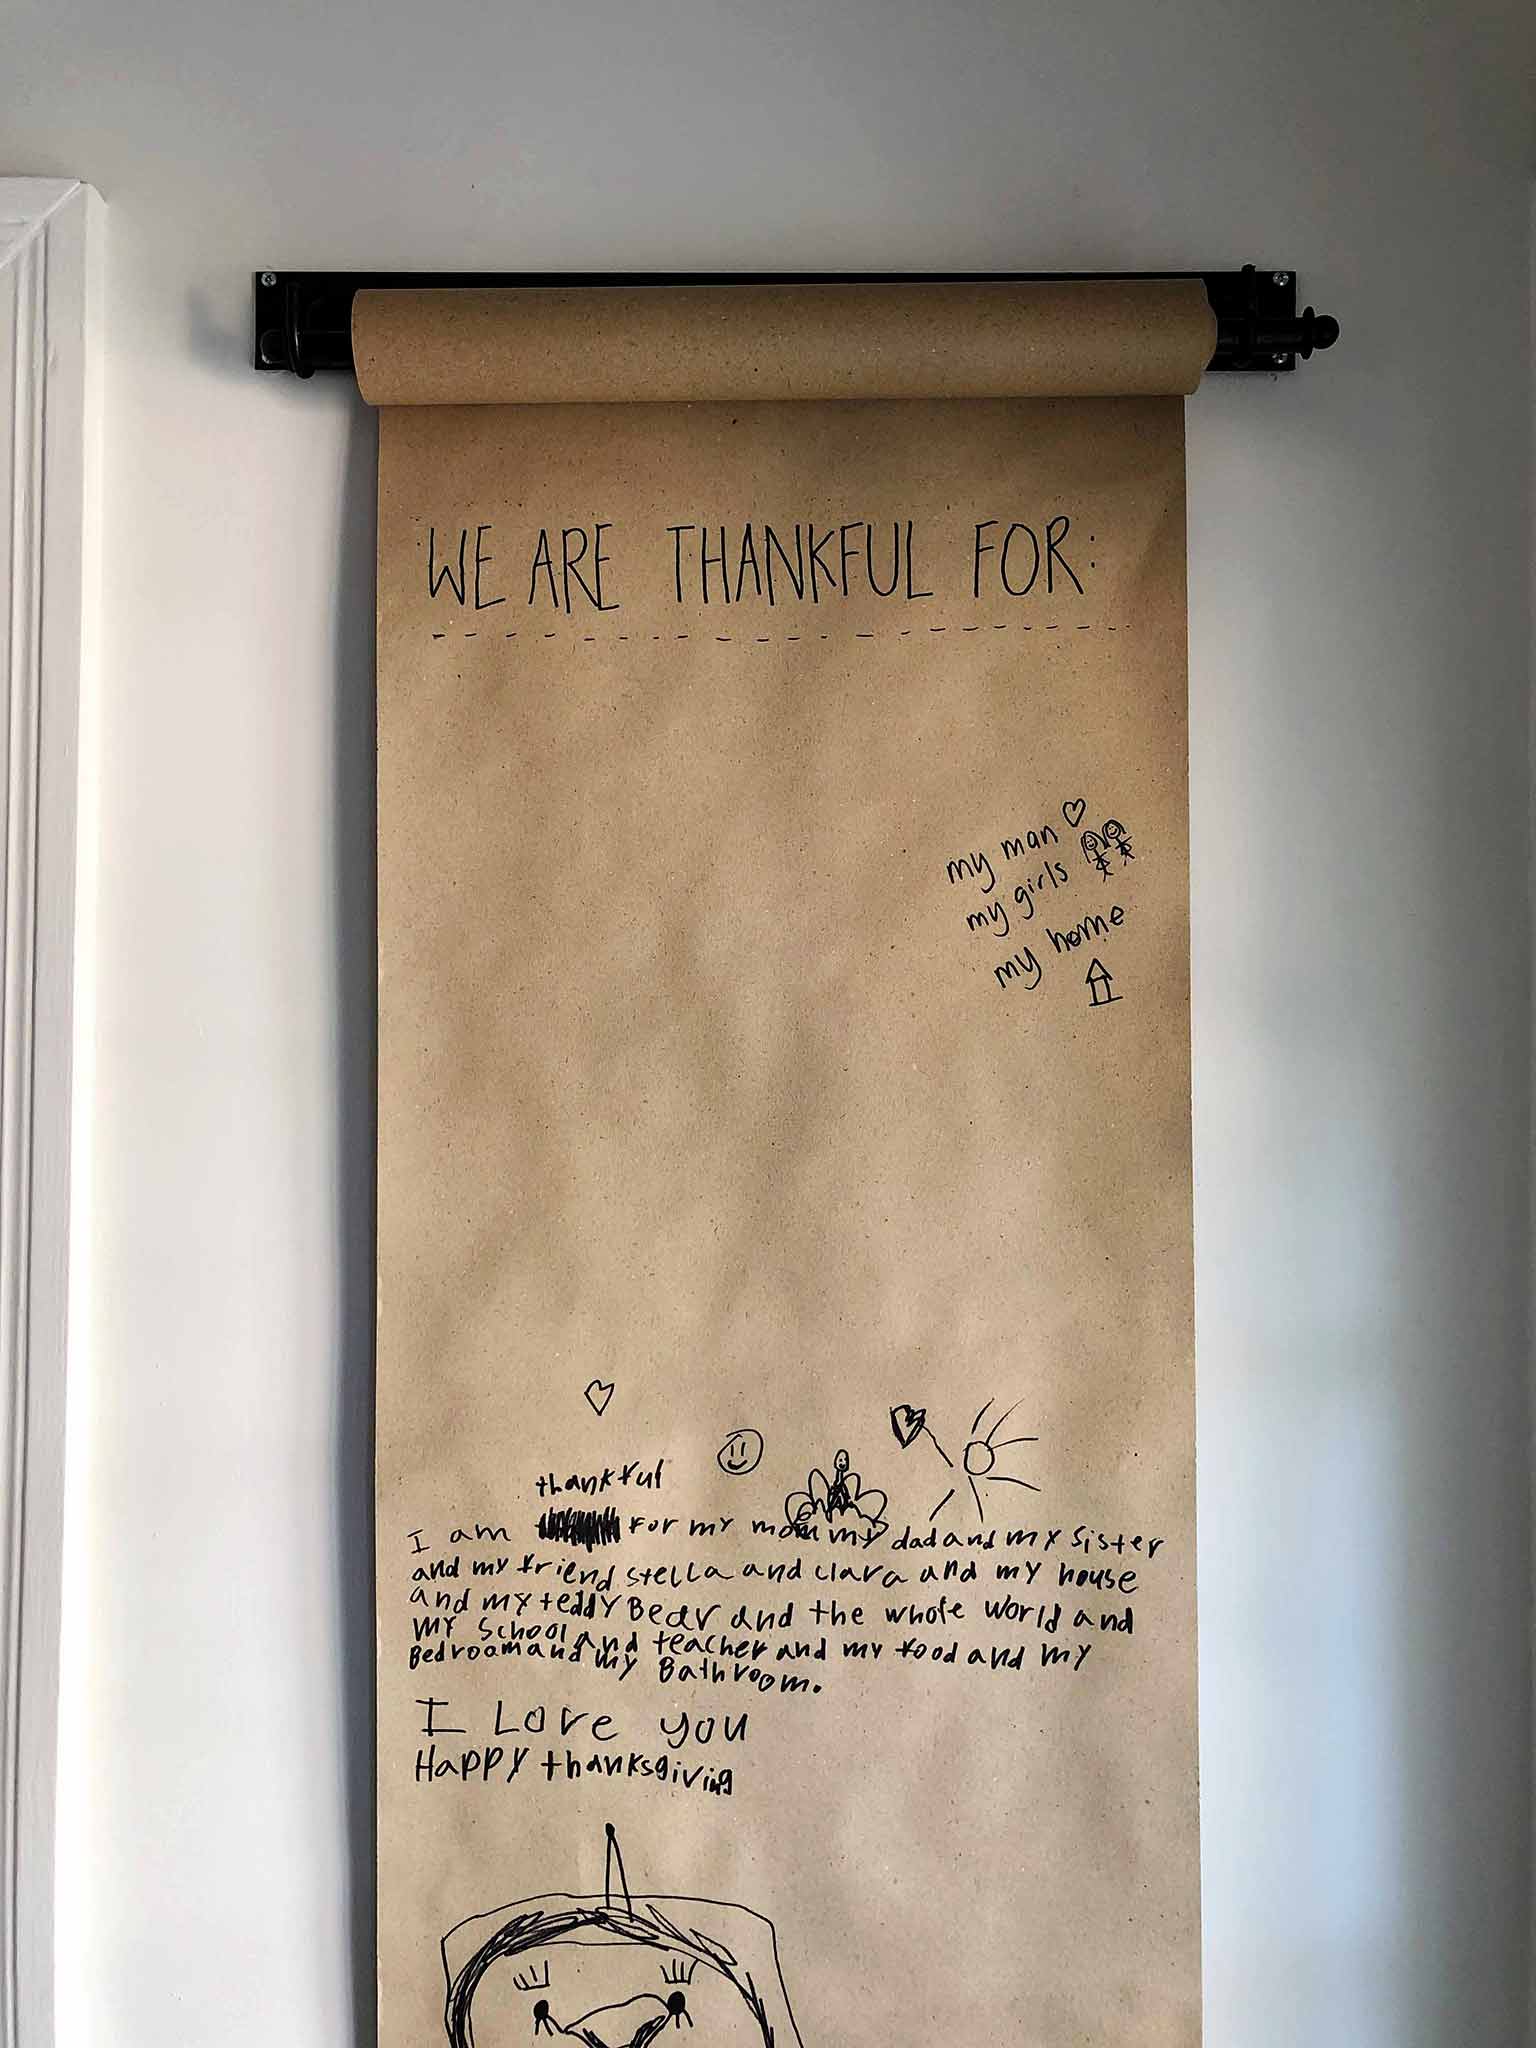 WE ARE THANKFUL FOR:
my man
my girls
my home
thankful
I am for my mom my dad and my sister
and my friend stella and clara and my house
and my teddy Bear and the whole world and
my School and teacher and my food and my
Bedroom and my Bathroom.
I Love you
Happy thanksgiving